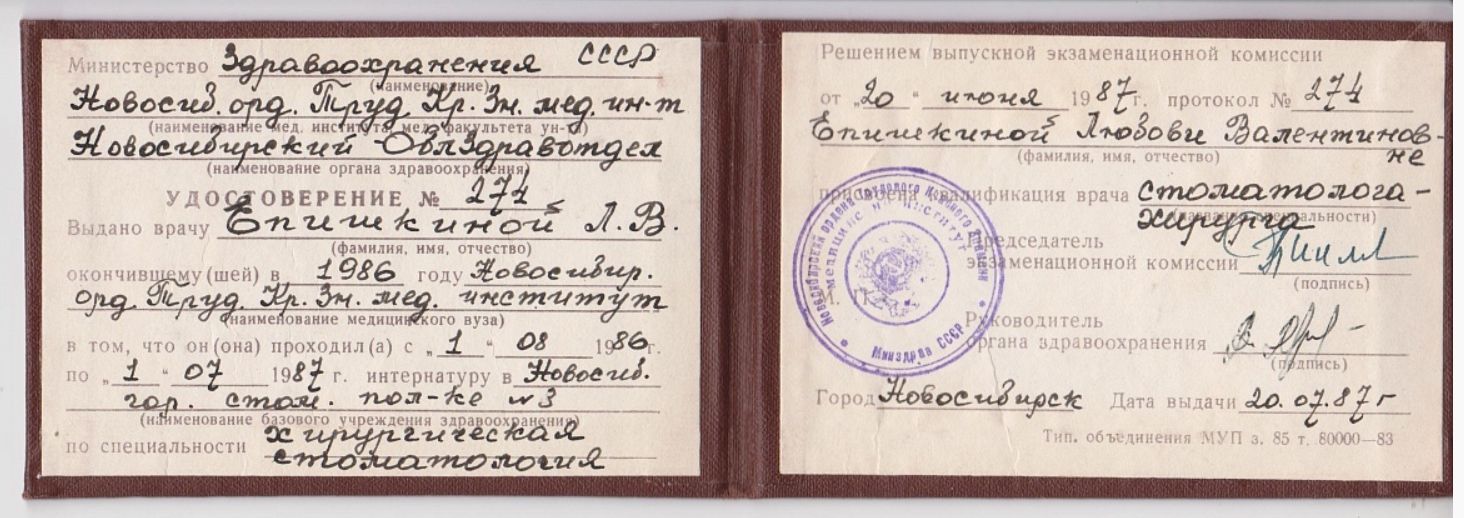 Министерство Здравоохранения СССР
(наименование)
Новосиб. орд. Труд. Кр. Зн. мед. ин-т
(наименование мед. института, мед. факультета ун-та)
Новосибирский Облздравотдел
(наименование органа здравоохранения)
УДОСТОВЕРЕНИЕ № 274
Выдано врачу Епишкиной Л.В.
(фамилия, имя, отчество)
окончившему (шей) в 1986 году Новосибир.
орд. Труд. Кр. Зн. мед. институт
(наименование медицинского вуза)
в том, что он (она) проходил (а) с „1“ 08 1986 г.
по „1“ 07 1987 г. интернатуру в Новосиб.
гор. стом. пол-ке № 3
(наименование базового учреждения здравоохранения)
по специальности хирургическая
стоматология
Решением выпускной экзаменационной комиссии
от „20“ июня 1987 г. протокол № 274
Епишкиной Любови Валентинов-
не
(фамилия, имя, отчество)
присвоена квалификация врача стоматолога-
хирурга
(название специальности)
Председатель
экзаменационной комиссии
(подпись)
М. П.
Руководитель
органа здравоохранения
(подпись)
Город Новосибирск Дата выдачи 20.07.87 г
Тип. объединения МУП з. 85 т. 80000—83
Новосибирский ордена Трудового Красного Знамени
медицинский институт
Минздрав СССР